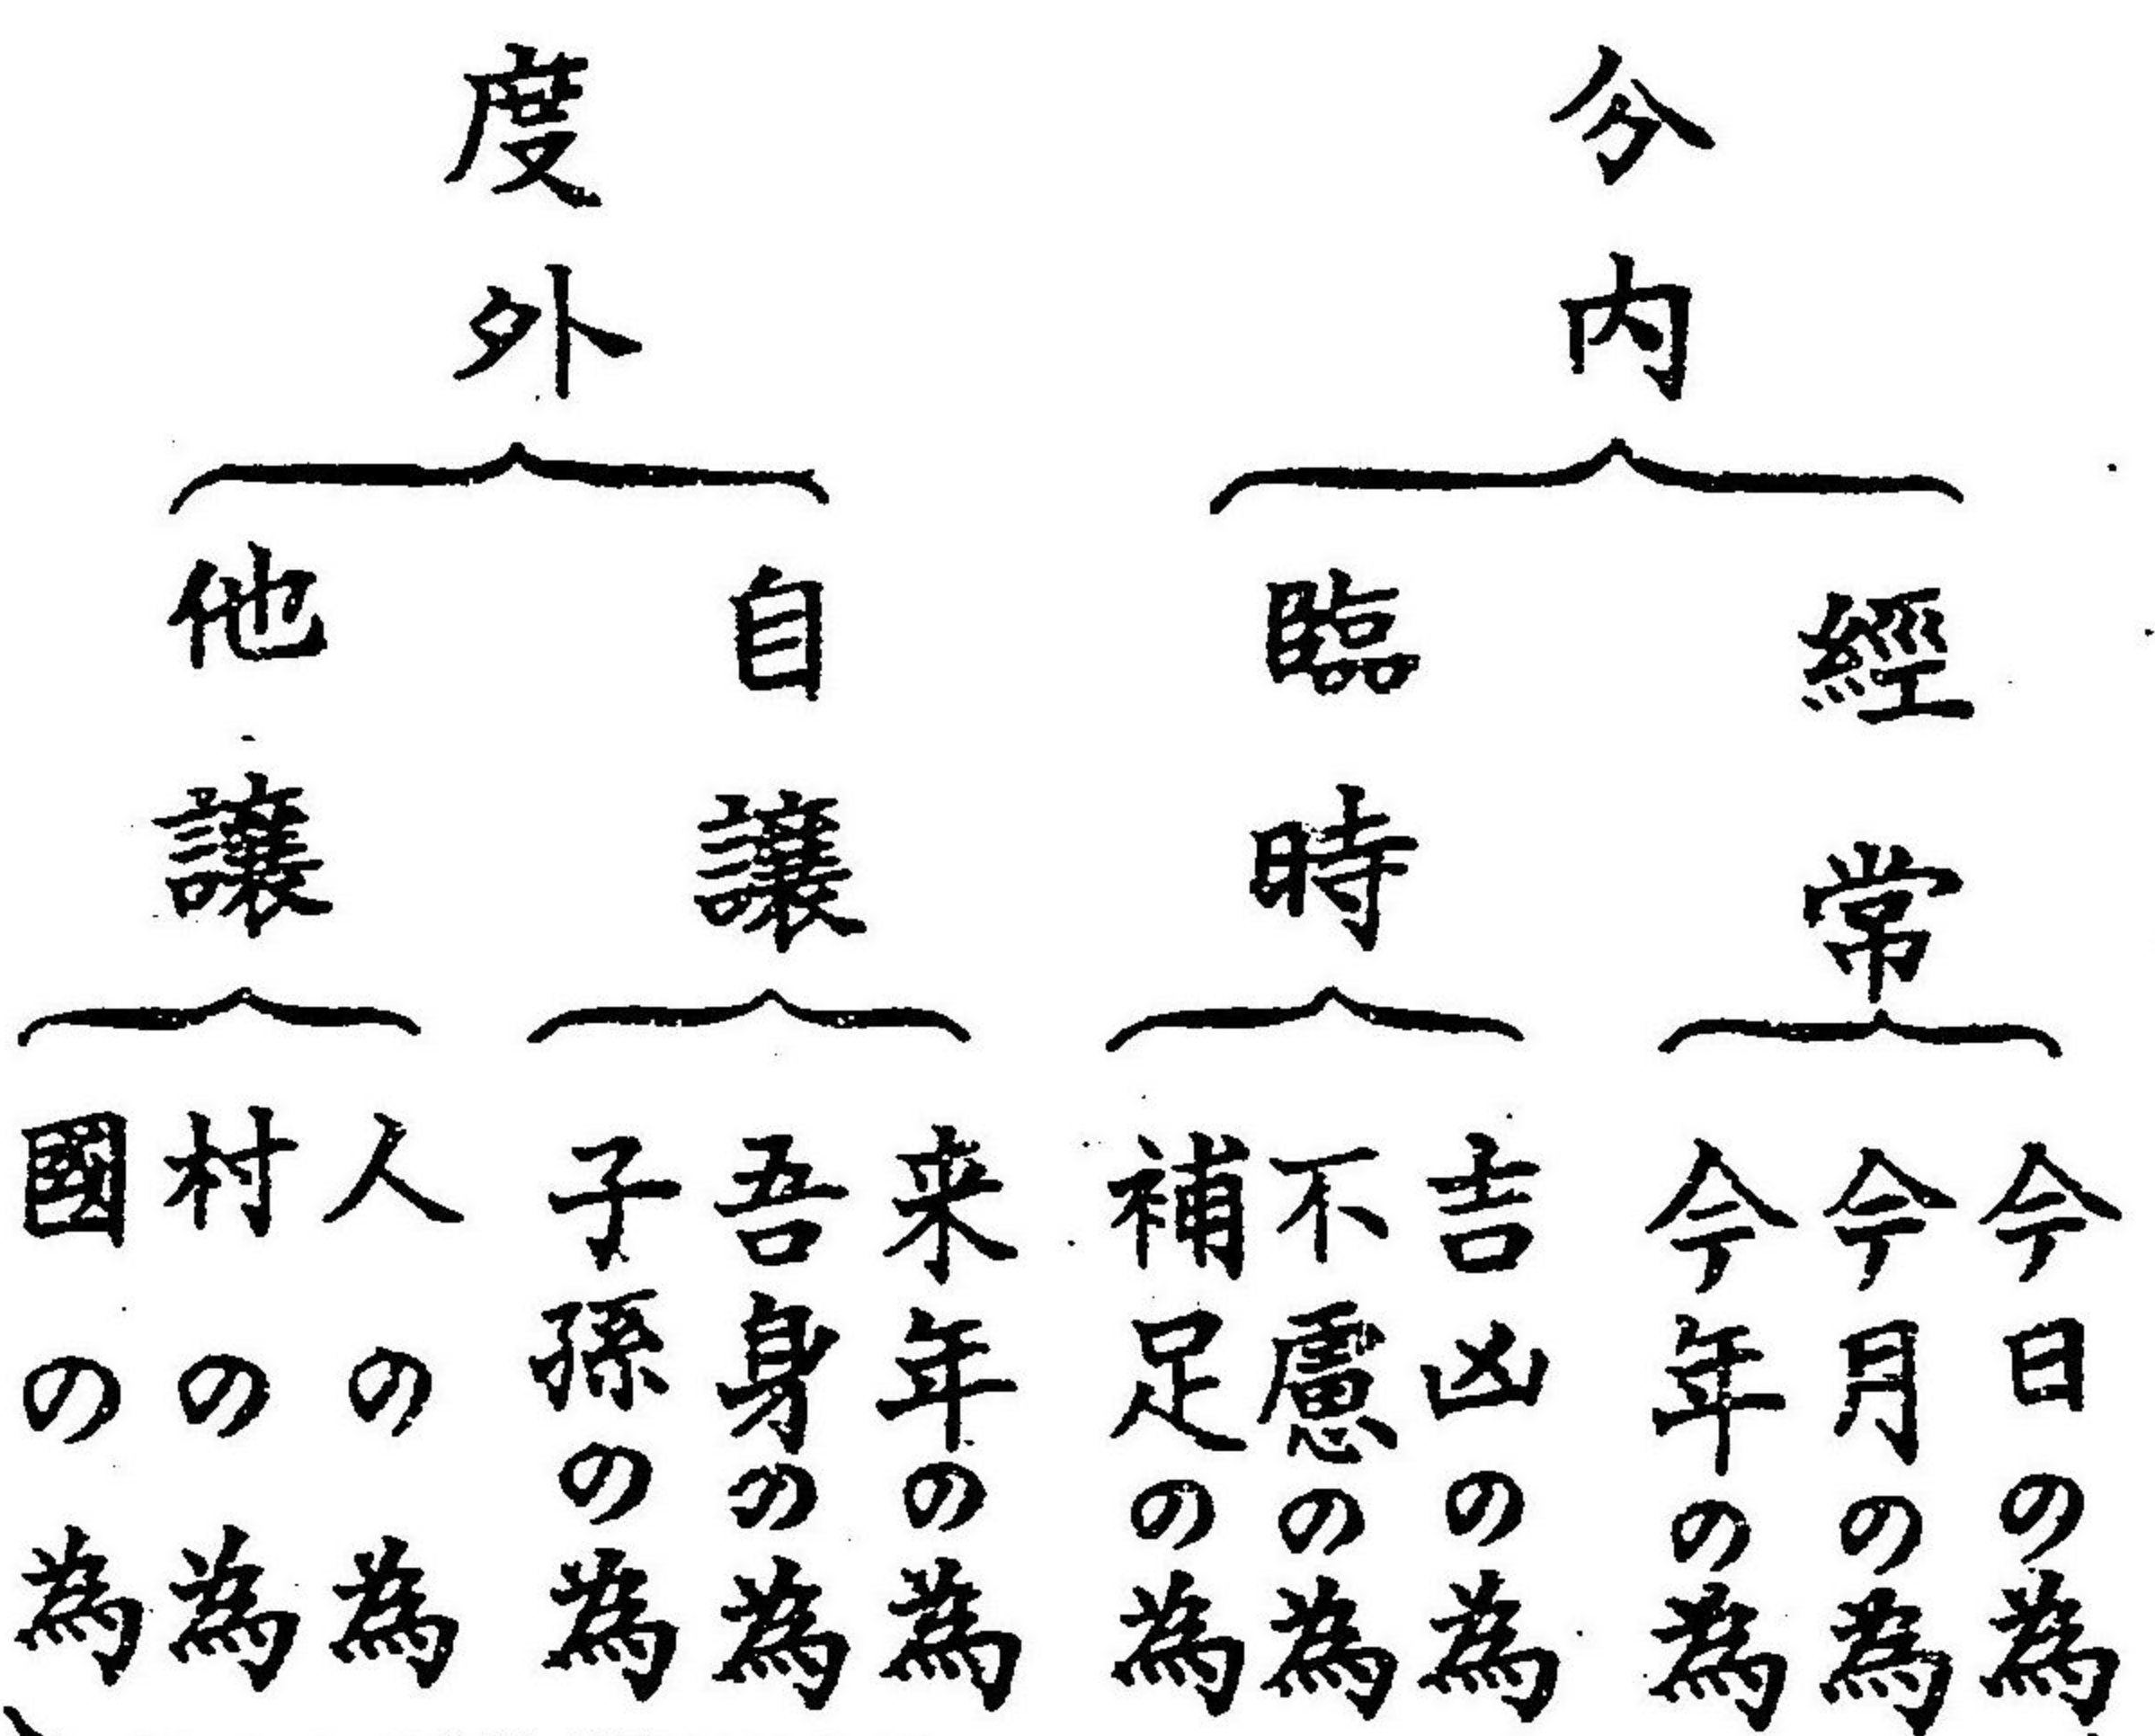 分内
經常
今日の為
今月の為
今年の為
臨時
吉凶の為
不慮の為
補足の為
度外
自譲
来年の為
吾身の為
子孫の為
他譲
人の為
村の為
國の為